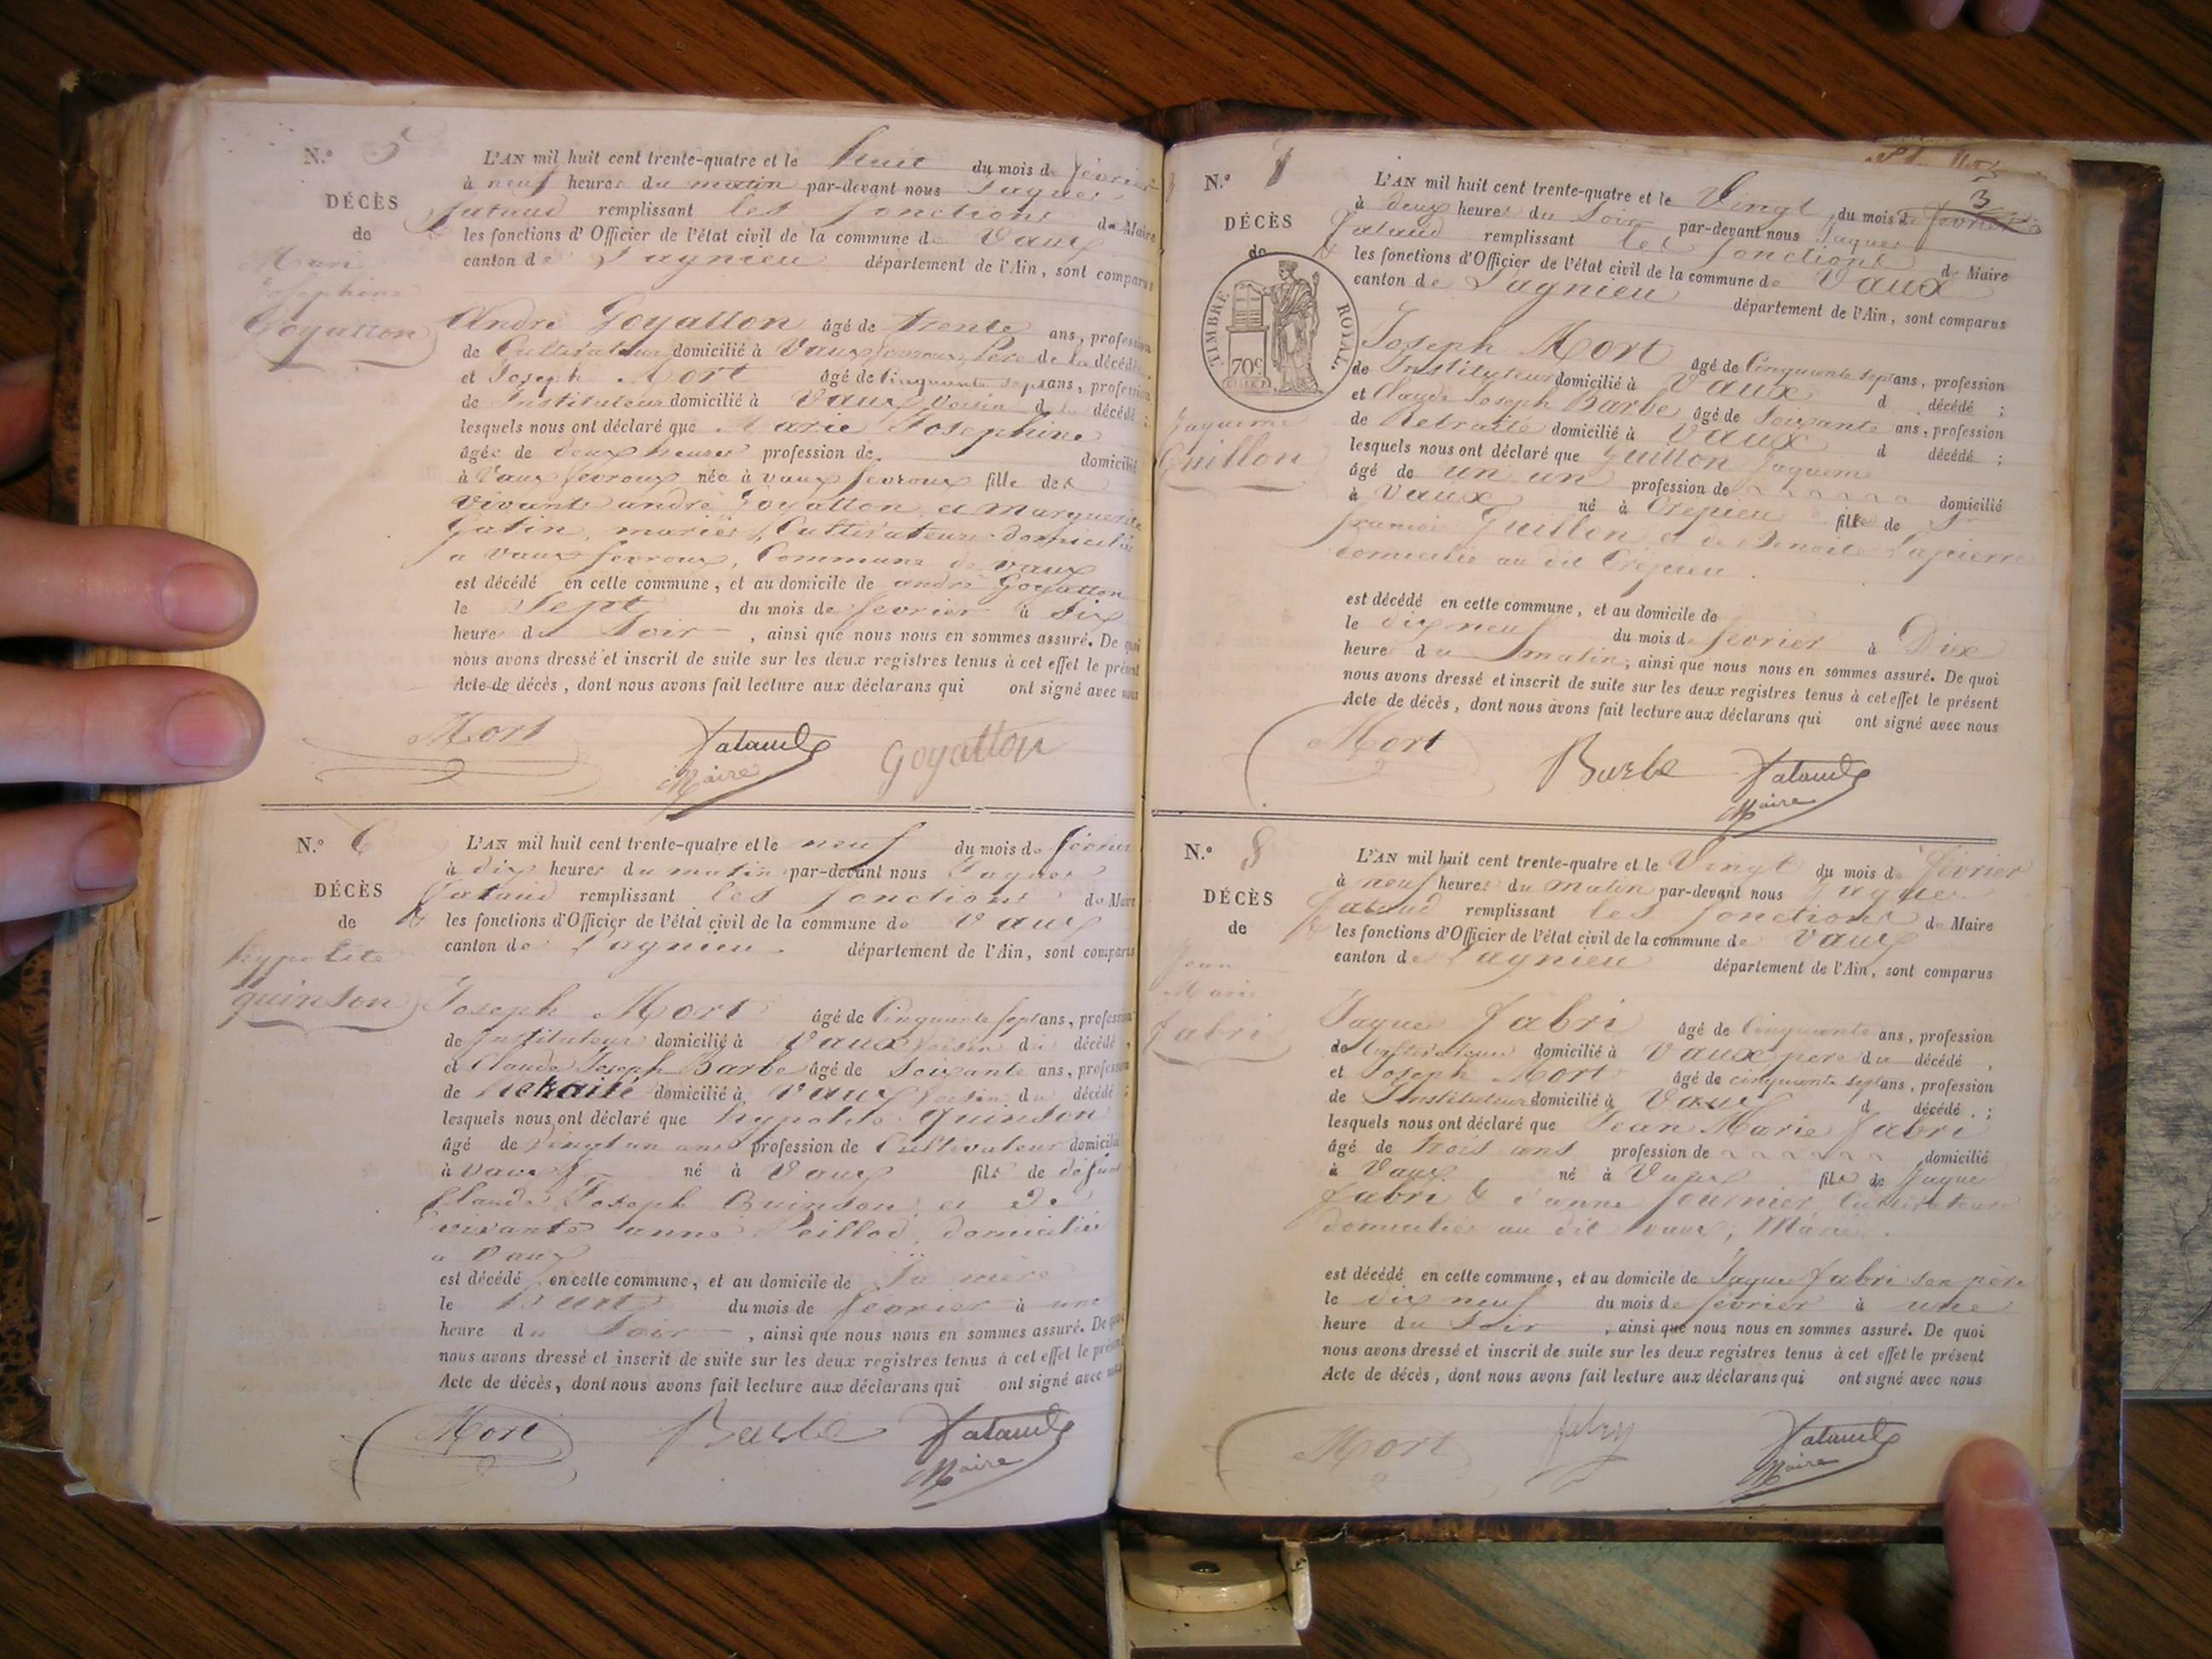 N.º 5
DÉCÈS
de
Mari
Josephine
Goyatton
L'AN mil huit cent trente-quatre et le huit du mois de février
à neuf heures du matin par-devant nous Jaques
Jataud remplissant les fonctions de Maire
les fonctions d'Officier de l'état civil de la commune de Vaux
canton de Lagnieu département de l'Ain, sont comparus
André Goyatton âgé de trente ans, profession
de Cultivateur domicilié à Vaux fevroux, Père de la décédée
et Joseph Mort âgé de Cinquante sept ans, profession
de Instituteur domicilié à Vaux Voisin d décédé ;
lesquels nous ont déclaré que Marie Josephine
âgée de deux heures profession de domicilié
à Vaux fevroux née à vaux fevroux fille de
vivants andré Goyatton et Marguerite
Gatin, mariés, Cultivateurs domicilié
a vaux fevroux, Commune de vaux
est décédé en cette commune, et au domicile de andré Goyatton
le Sept du mois de fevrier à dix
heure du Soir, ainsi que nous nous en sommes assuré. De quoi
nous avons dressé et inscrit de suite sur les deux registres tenus à cet effet le présent
Acte de décès, dont nous avons fait lecture aux déclarans qui ont signé avec nous
Mort Jataud Goyatton
Maire
N.º 6
DÉCÈS
de
hypolite
quinson
L'AN mil huit cent trente-quatre et le neuf du mois de février
à dix heures du matin par-devant nous Jaques
Jataud remplissant les fonctions de Maire
les fonctions d'Officier de l'état civil de la commune de Vaux
canton de Lagnieu département de l'Ain, sont comparus
Joseph Mort âgé de Cinquante sept ans, profession
de Instituteur domicilié à Vaux Voisin du décédé,
et Claude Joseph Barbe âgé de Soixante ans, profession
de Retraité domicilié à Vaux Voisin du décédé ;
lesquels nous ont déclaré que hypolite quinson
âgé de Vingt un ans profession de Cultivateur domicilié
à Vaux né à Vaux fils de défunt
Claude Joseph Quinson, et de
vivante anne Peillod, domiciliés
a Vaux
est décédé en cette commune, et au domicile de Sa mere
le Huit du mois de février à une
heure du Soir, ainsi que nous nous en sommes assuré. De quoi
nous avons dressé et inscrit de suite sur les deux registres tenus à cet effet le présent
Acte de décès, dont nous avons fait lecture aux déclarans qui ont signé avec nous
Mort Barbe Jataud
Maire
3
N.º 7
DÉCÈS
de
TIMBRE ROYAL
70c
Jaqueme
Guillon
L'AN mil huit cent trente-quatre et le Vingt du mois de fevrier
à deux heures du Soir par-devant nous Jaques
Jataud remplissant les fonctions de Maire
les fonctions d'Officier de l'état civil de la commune de Vaux
canton de Lagnieu département de l'Ain, sont comparus
Joseph Mort âgé de Cinquante sept ans, profession
de Instituteur domicilié à Vaux d décédé ;
et Claude Joseph Barbe âgé de Soixante ans, profession
de Retraité domicilié à Vaux d décédé ;
lesquels nous ont déclaré que Guillon Jaqueme
âgé de un an profession de domicilié
à Vaux né à Crépieu fille de
francois Guillon et de Benoite Lapierre
domicilié au dit Crépieu
est décédé en cette commune, et au domicile de
le dix neuf du mois de fevrier à Dix
heure du matin, ainsi que nous nous en sommes assuré. De quoi
nous avons dressé et inscrit de suite sur les deux registres tenus à cet effet le présent
Acte de décès, dont nous avons fait lecture aux déclarans qui ont signé avec nous
Mort Barbe Jataud
Maire
N.º 8
DÉCÈS
de
Jean
Marie
Jabri
L'AN mil huit cent trente-quatre et le Vingt du mois de février
à neuf heures du matin par-devant nous Jaques
Jataud remplissant les fonctions de Maire
les fonctions d'Officier de l'état civil de la commune de Vaux
canton de Lagnieu département de l'Ain, sont comparus
Jaques Jabri âgé de Cinquante ans, profession
de Cultivateur domicilié à Vaux pere du décédé,
et Joseph Mort âgé de cinquante sept ans, profession
de Instituteur domicilié à Vaux d décédé ;
lesquels nous ont déclaré que Jean Marie Jabri
âgé de trois ans profession de domicilié
à Vaux né à Vaux fils de Jaque
Jabri & d'anne fournier, Cultivateurs
domiciliés au dit vaux, Mariés.
est décédé en cette commune, et au domicile de Jaques Jabri son père
le dix neuf du mois de février à une
heure du Soir, ainsi que nous nous en sommes assuré. De quoi
nous avons dressé et inscrit de suite sur les deux registres tenus à cet effet le présent
Acte de décès, dont nous avons fait lecture aux déclarans qui ont signé avec nous
Mort fabry Jataud
Maire